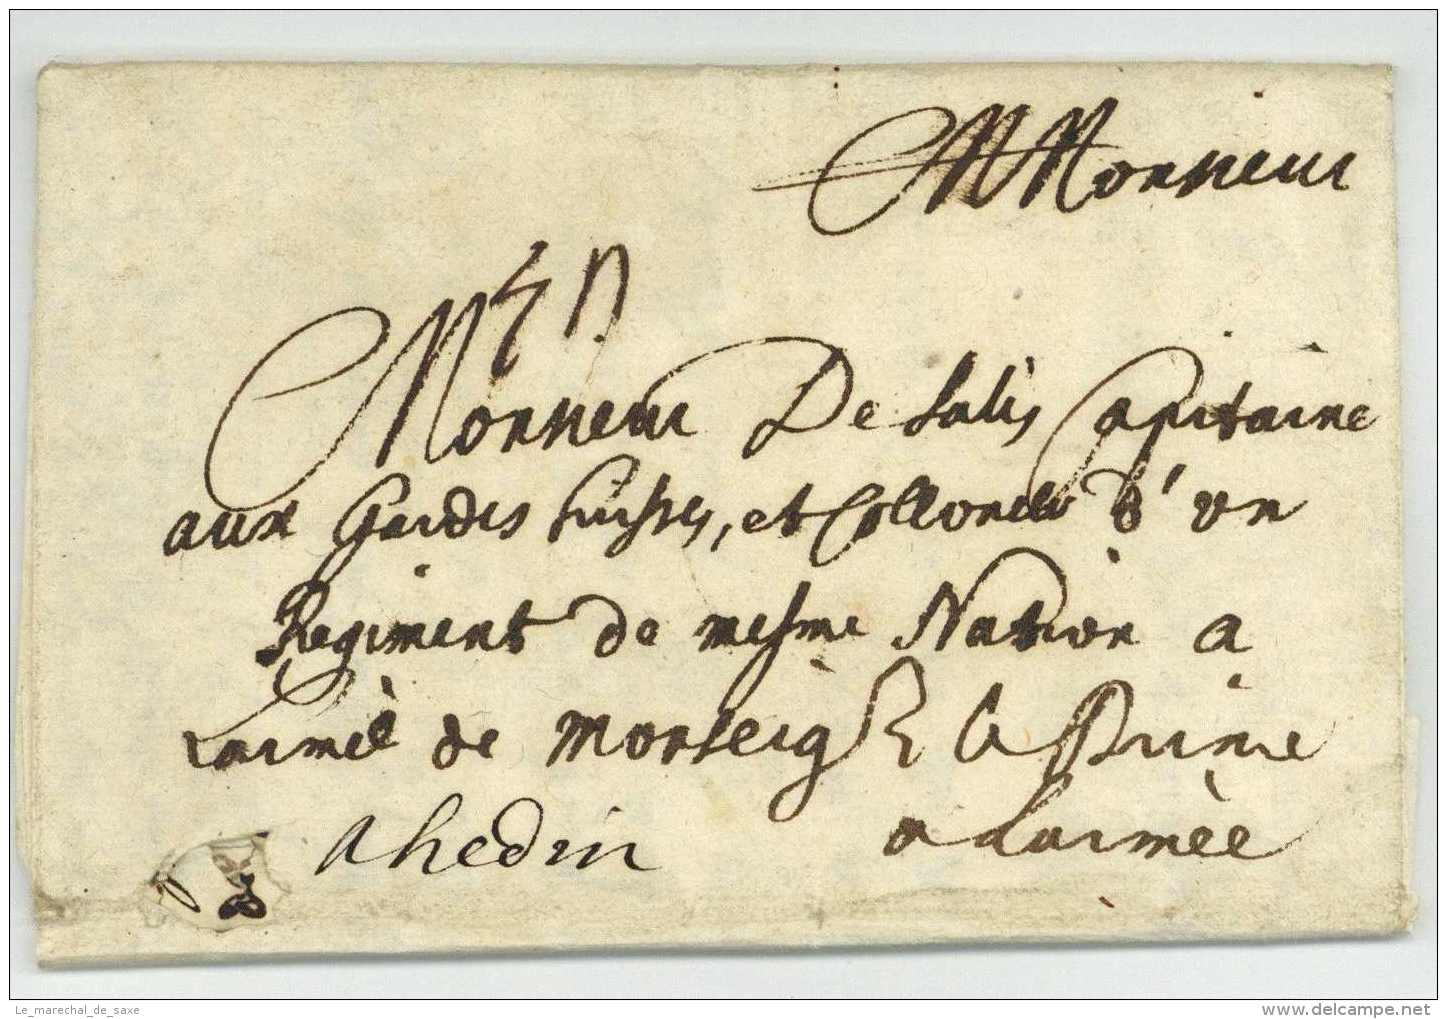 Monsieur
Monsieur De Salis Capitaine
aux Gardes suisses, et Collonell d'un
Regiment de mesme Nation a
Larmèe de Monseigr le Prince
a Larmèe
a hedin
Le_marechal_de_saxe
delcampe.net